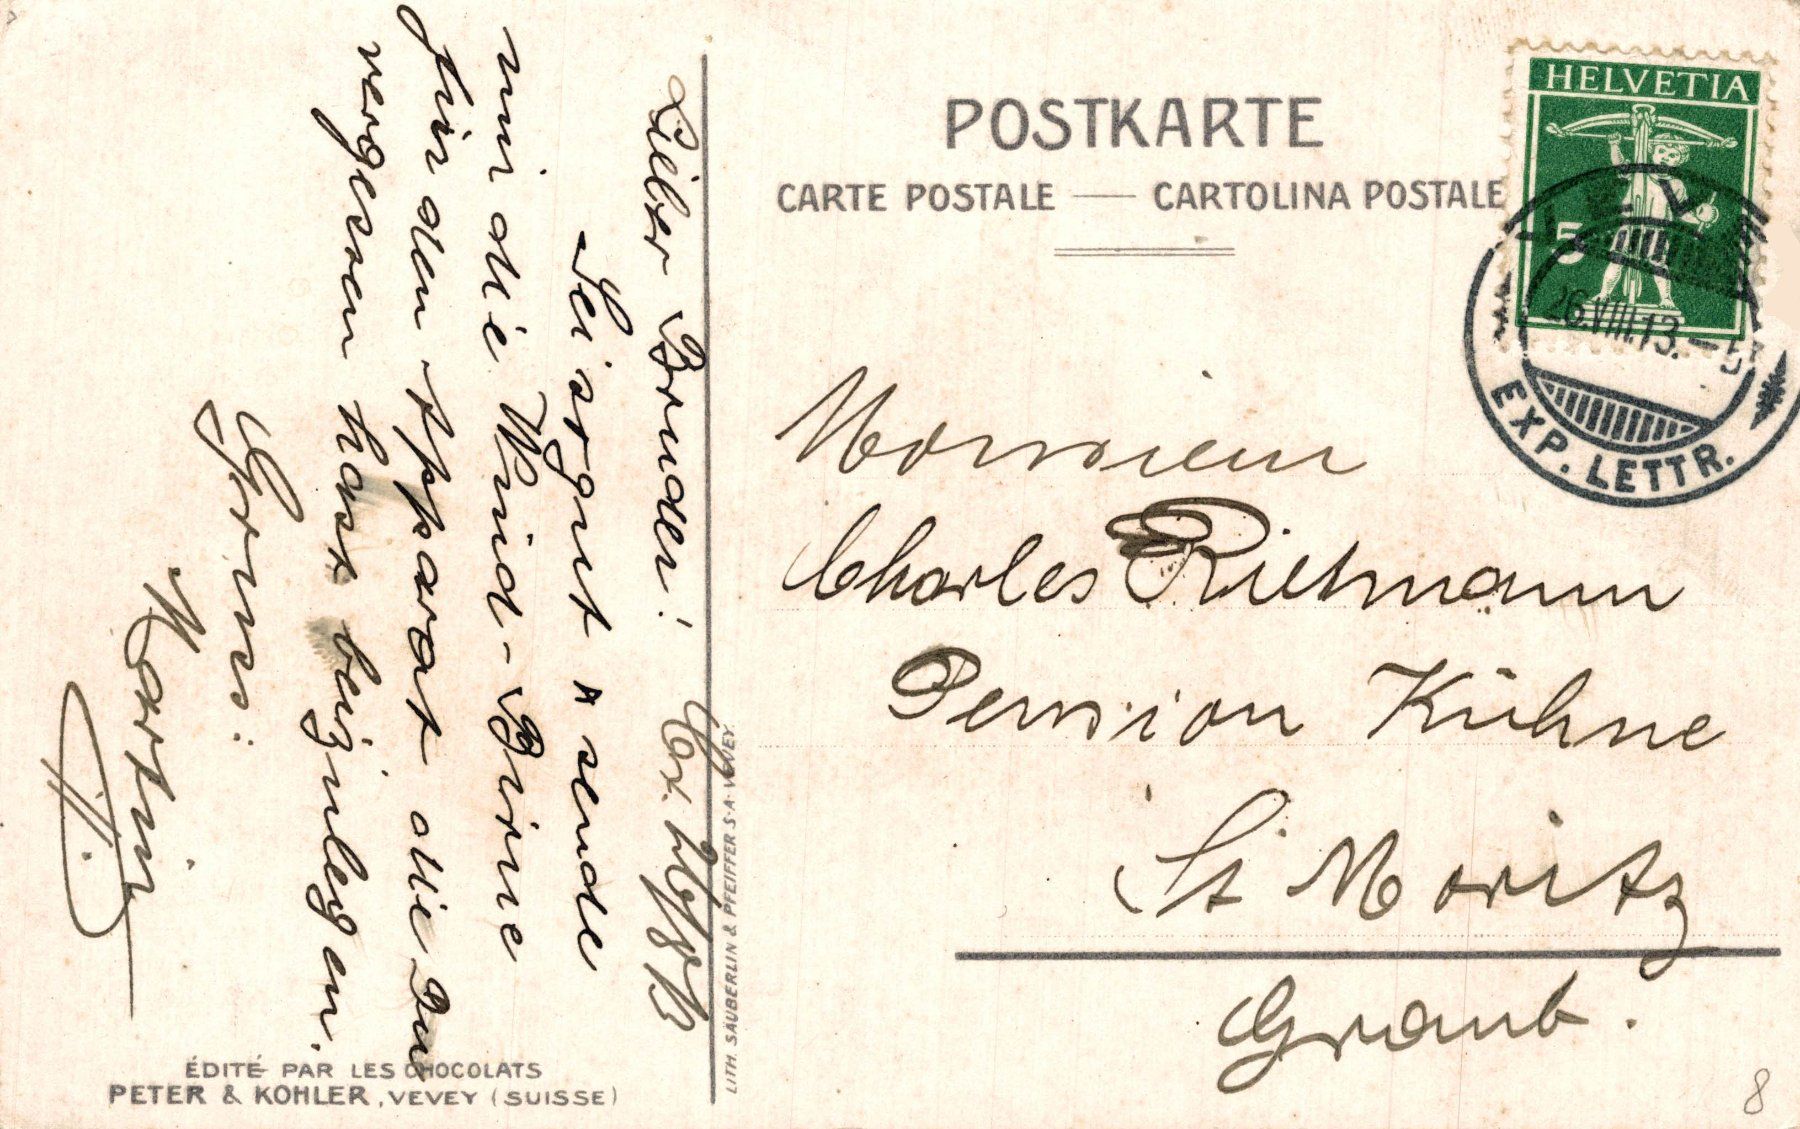 POSTKARTE
CARTE POSTALE — CARTOLINA POSTALE
HELVETIA
5
26.VIII.13.–5
EXP. LETTR.
Monsieur
Charles Rietmann
Pension Kühne
St Moritz
Graub.
26/8/13
Lieber Bruder!
Sei so gut & sende
mir die Wind-Birne
für den Apparat die Du
vergessen hast beizulegen.
Gruss:
Martin
ÉDITÉ PAR LES CHOCOLATS
PETER & KOHLER, VEVEY (SUISSE)
LITH. SÄUBERLIN & PFEIFFER S.A. VEVEY.
8